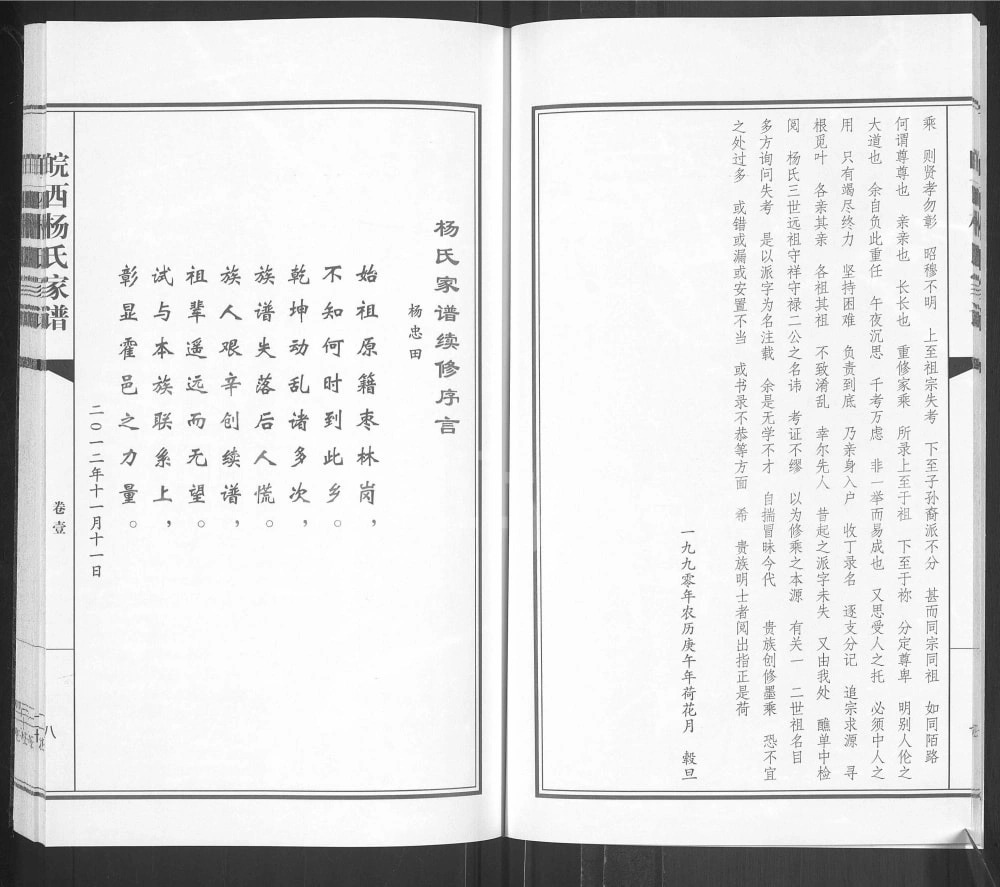 乘　则贤孝勿彰　昭穆不明　上至祖宗失考　下至子孙裔派不分　甚而同宗同祖　如同陌路
何谓尊尊也　亲亲也　长长也　重修家乘　所录上至于祖　下至于祢　分定尊卑　明别人伦之
大道也　余自负此重任　午夜沉思　千考万虑　非一举而易成也　又思受人之托　必须中人之
用　只有竭尽终力　坚持困难　负责到底　乃亲身入户　收丁录名　逐支分记　追宗求源　寻
根觅叶　各亲其亲　各祖其祖　不致淆乱　幸尔先人　昔起之派字未失　又由我处　醮单中检
阅　杨氏三世远祖守祥守禄二公之名讳　考证不缪　以为修乘之本源　有关一　二世祖名目
多方询问失考　是以派字为名注载　余是无学不才　自揣冒昧今代　贵族创修墨乘　恐不宜
之处过多　或错或漏或安置不当　或书录不恭等方面　希　贵族明士者阅出指正是荷
一九九零年农历庚午年荷花月　榖旦
杨氏家谱续修序言
杨忠田
始祖原籍枣林岗，
不知何时到此乡。
乾坤动乱诸多次，
族谱失落后人慌。
族人艰辛创续谱，
祖辈遥远而无望。
试与本族联系上，
彰显霍邑之力量。
二〇一二年十一月十一日
皖西杨氏家谱
卷壹
八